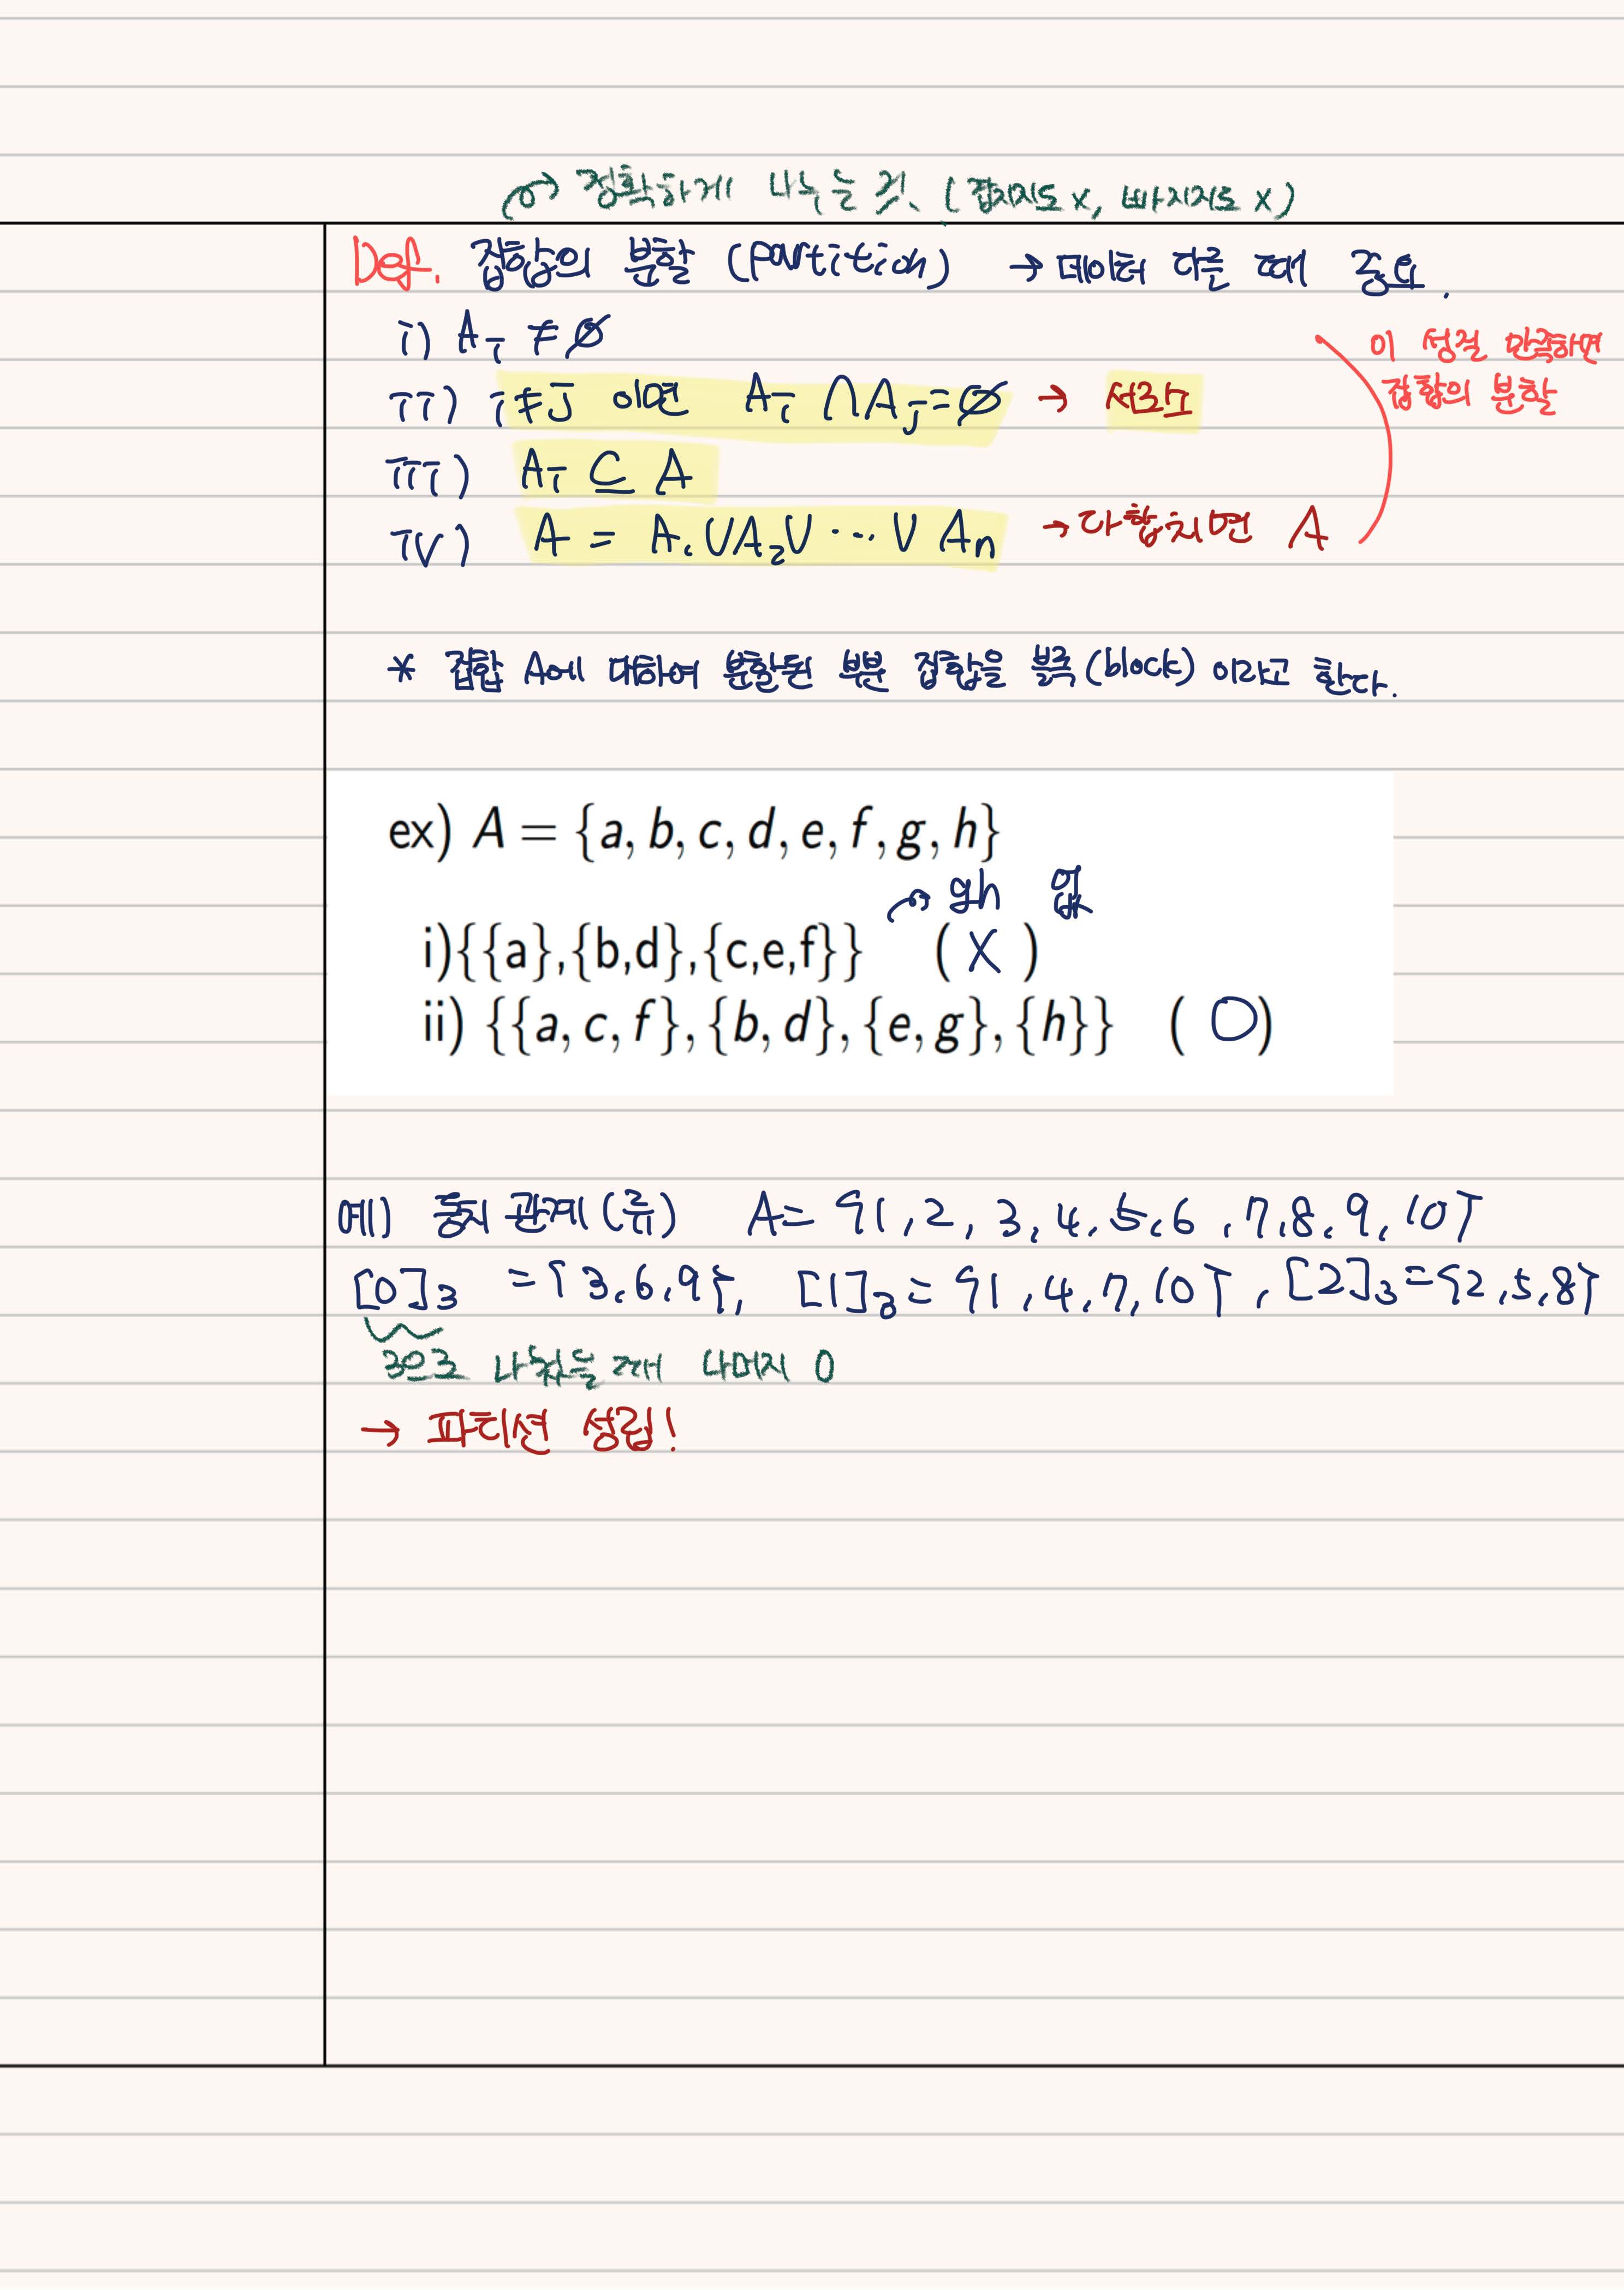 정확하게 나누는 것. (겹치지도 x, 빠지지도 x)
Def. 집합의 분할 (partition) → 데이터 다룰 때 중요.
i) Aᵢ ≠ ∅
이 성질 만족하면
ii) i≠j 이면 Aᵢ ∩ Aⱼ = ∅ → 서로소
집합의 분할
iii) Aᵢ ⊆ A
iv) A = A₁ ∪ A₂ ∪ ⋯ ∪ Aₙ → 다 합치면 A
* 집합 A에 대하여 분할된 부분 집합을 블록(block) 이라고 한다.
ex) A = {a, b, c, d, e, f, g, h}
gh 없
i){{a},{b,d},{c,e,f}} ( X )
ii) {{a, c, f}, {b, d}, {e, g}, {h}} ( O )
예) 동치 관계(류) A = {1, 2, 3, 4, 5, 6, 7, 8, 9, 10}
[0]₃ = {3, 6, 9}, [1]₃ = {1, 4, 7, 10}, [2]₃ = {2, 5, 8}
3으로 나눴을 때 나머지 0
→ 파티션 성립!